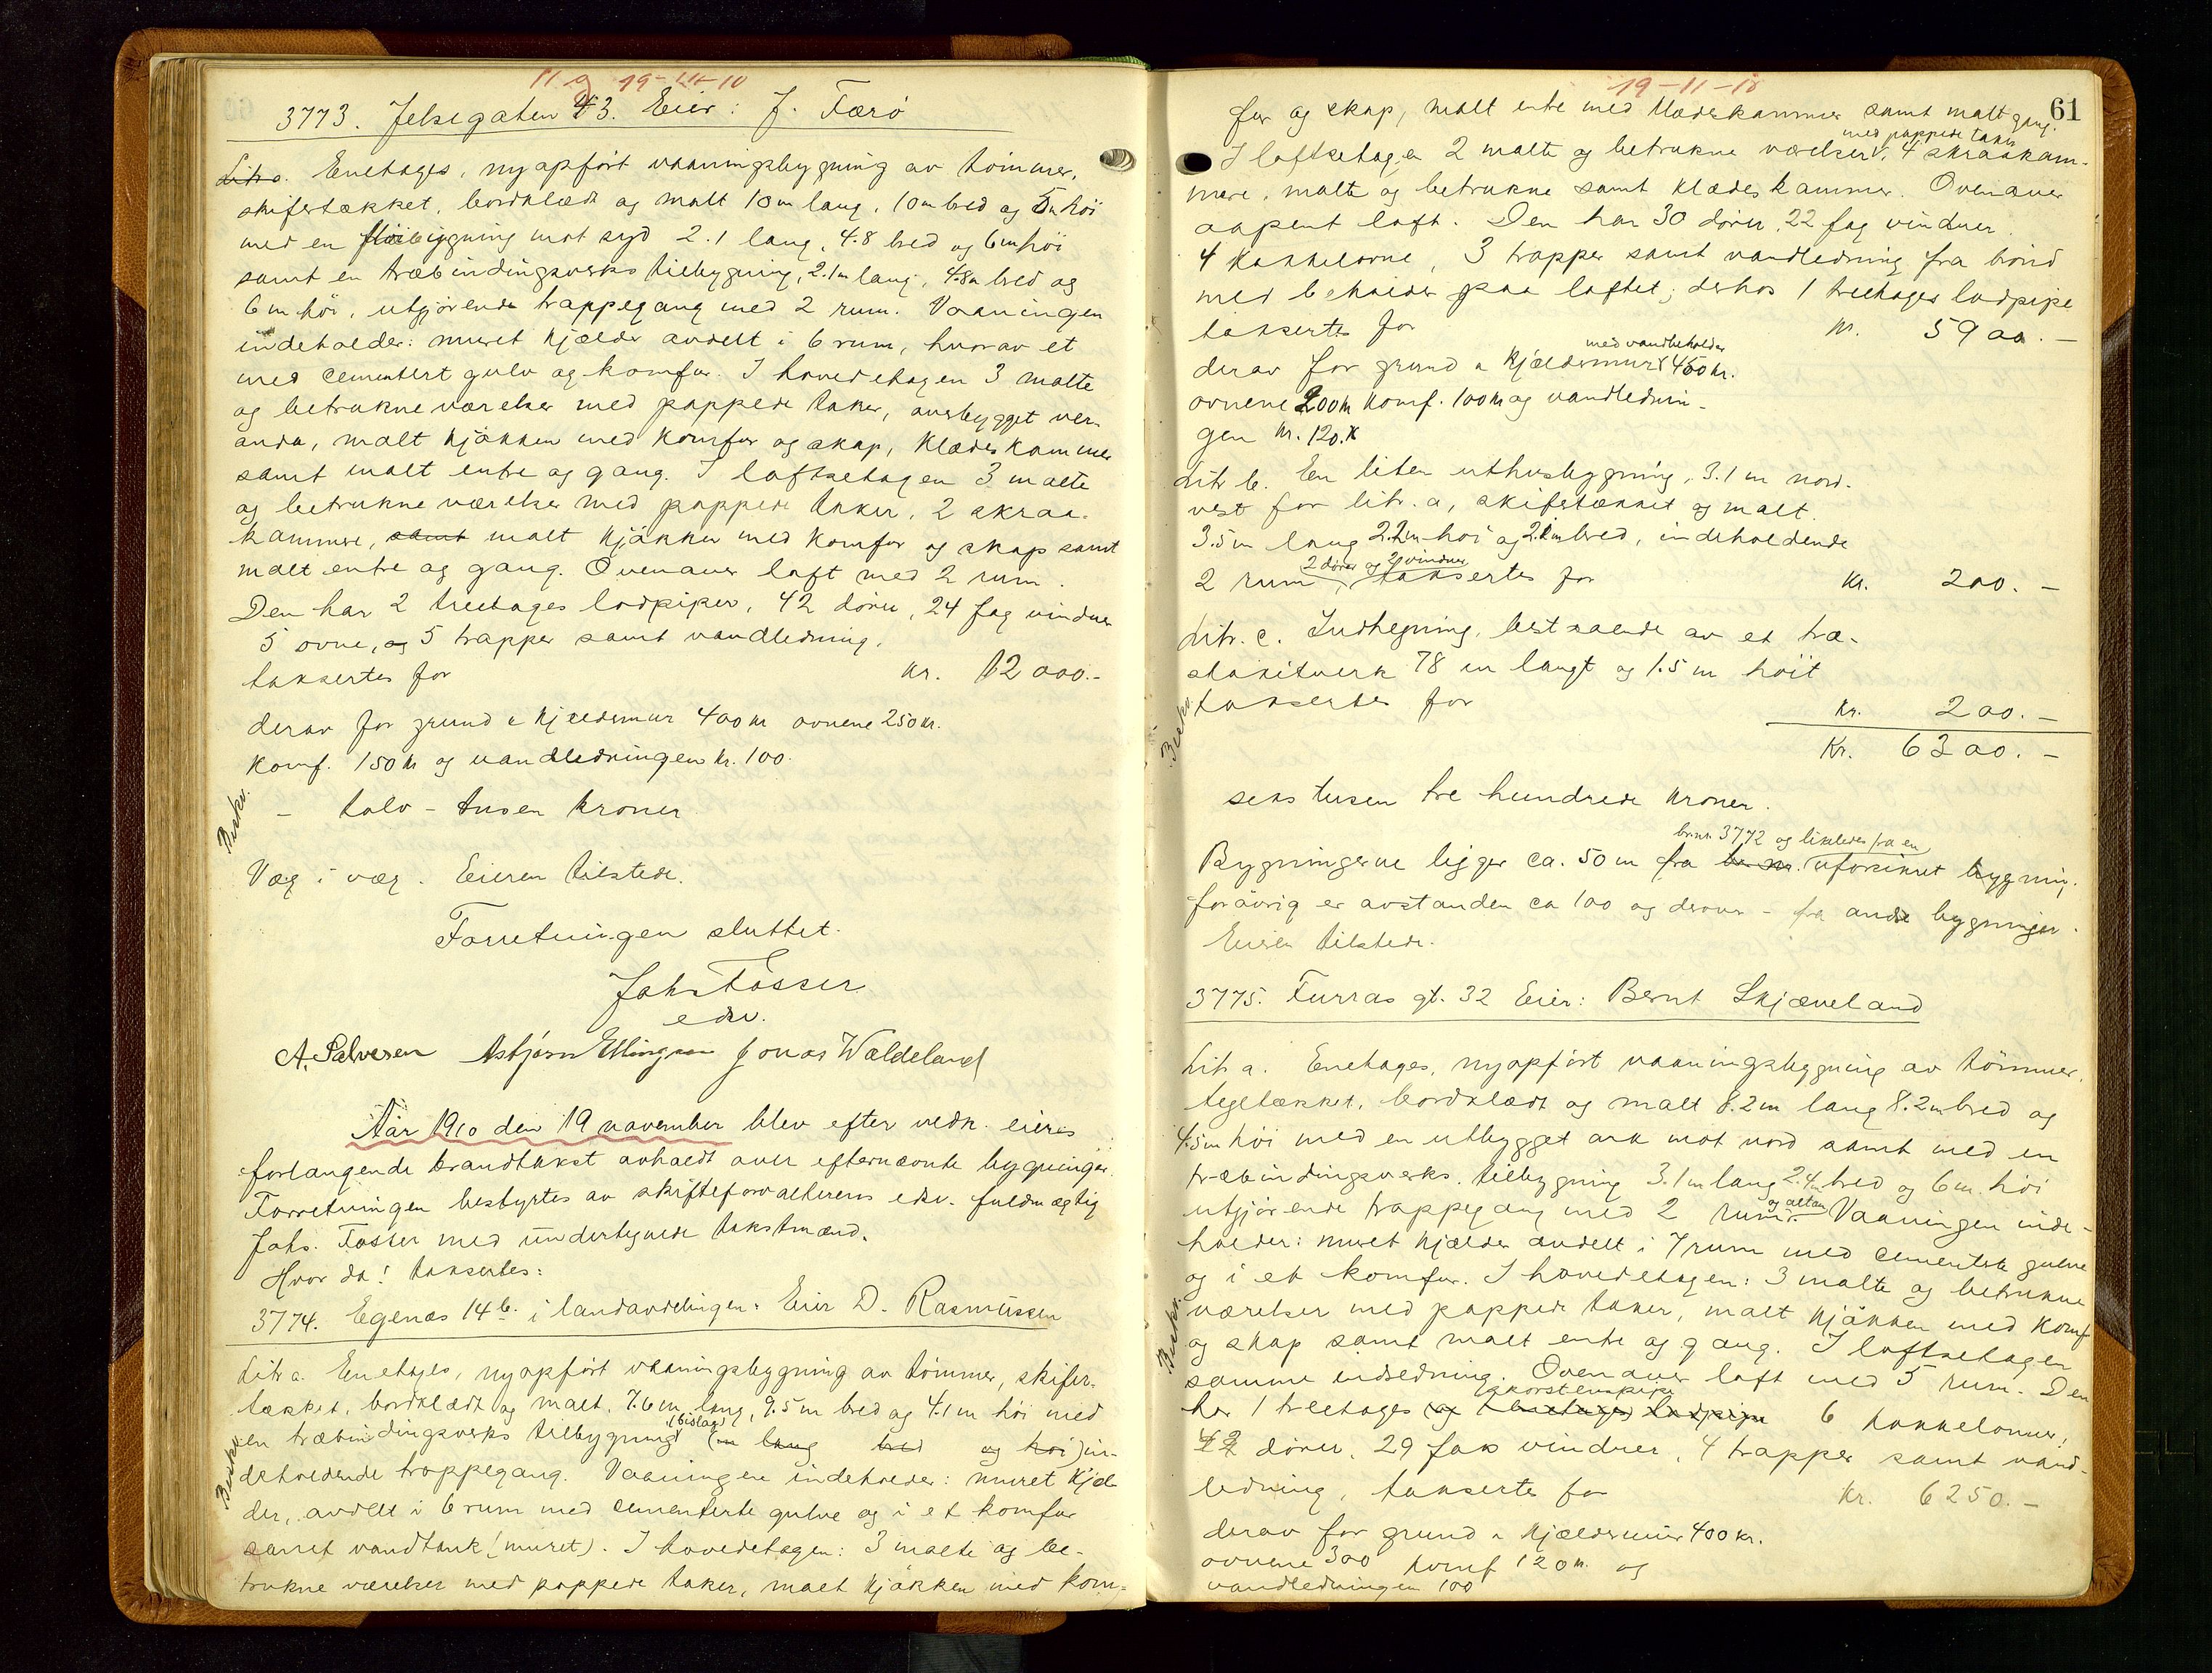 19-11-10
3773. Jelsegaten 43. Eier: J. Færö
Litr a. Enetages, nyopfört vaaningsbygning av tömmer,
skifertækket, bordklædt og malt 10 m lang, 10 m bred og 5 m höi
med en flöibygning mot syd 2.1 lang, 4.8 bred og 6 m höi
samt en træbindingsverks tilbygning, 2.1 m lang, 4.8 m bred og
6 m höi, utgjörende trappegang med 2 rum. Vaaningen
indeholder: muret kjælder avdelt i 6 rum, hvorav et
med cementert gulv og komfur. I hovedetagen 3 malte
og betrukne værelser med pappede taker, overbygget ver-
anda, malt kjökken med komfur og skap, klædeskammer
samt malt entre og gang. I loftsetagen 3 malte
og betrukne værelser med pappede taker, 2 skraa-
kammere, samt malt kjökken med komfur og skap samt
malt entre og gang. Ovenover loft med 2 rum.
Den har 2 treetages lodpiper, 42 dörer, 24 fag vinduer
5 ovne, og 5 trapper samt vandledning,
taksertes for kr. 12 000.-
derav for grund & kjældermur 400 kr ovnene 250 kr.
komf. 150 kr og vandledningen kr. 100.
Beskr.
- tolv - tusen kroner
Væg i væg. Eieren tilstede.
Forretningen sluttet.
Johs Tosser
edsv.
A. Salvesen Asbjørn Ellingsen Jonas Waldeland
Aar 1910 den 19 november blev efter vedk. eieres
forlangende brandtakst avholdt over efternævnte bygninger.
Forretningen bestyrtes av skifteforvalterens edsv. fuldmægtig
Johs. Tosser med undertegnede takstmænd.
Hvor da! taksertes:
3774. Egenæs 14 b. i landavdelingen. Eier D. Rasmussen
Litr a. Enetages, nyopfört vaaningsbygning av tömmer, skifer-
tækket, bordklædt og malt, 7.6 m lang, 9.5 m bred og 4.1 m höi med
en træbindingsverks tilbygning (bislag) (m lang bred og höi) in-
deholdende trappegang. Vaaningen indeholder: muret kjæl-
der, avdelt i 6 rum med cementerte gulve og i et komfur
samt vandtank (muret). I hovedetagen: 3 malte og be-
trukne værelser med pappede taker, malt kjökken med kom-
Beskr.
19-11-10
61
fur og skap, malt entre med klædeskammer samt malt gang.
I loftsetagen 2 malte og betrukne værelser med pappede taker, 4 skraakam-
mere, malte og betrukne samt klædeskammer. Ovenover
aapent loft. Den har 30 dörer, 22 fag vinduer
4 kakkelovne, 3 trapper samt vandledning fra brönd
med beholder paa loftet; derhos 1 treetages lodpipe
taksertes for kr. 5900.-
derav for grund & kjældermur med vandbeholder 450 kr.
ovnene 200 kr komf. 100 kr og vandlednin-
gen kr. 120.
Litr b. En liten uthusbygning, 3.1 m nord-
vest for litr. a, skifertækket og malt.
3.5 m lang 2.2 m höi og 2.1 m bred, indeholdende
2 rum, 2 dörer og 2 vinduer, taksertes for kr. 200.-
Litr. c. Indhegning, bestaaende av et træ-
stakitverk 78 m langt og 1.5 m höit
taksertes for kr. 200.-
Kr. 6300.-
Beskr.
seks tusen tre hundrede kroner.
Bygningerne ligger ca. 50 m fra br. nr. br.nr. 3772 og likeledes fra en uforsikret bygning,
forövrig er avstanden ca 100 og derover - fra andre bygninger.
Eieren tilstede.
3775. Furras gt. 32 Eier: Bernt Skjæveland
Litr a. Enetages, nyopfört vaaningsbygning av tömmer,
tegltækket, bordklædt og malt 8.2 m lang 8.2 m bred og
4.5 m höi med en utbygget ark mot nord samt med en
træbindingsverks. tilbygning 3.1 m lang 2.4 m bred og 6 m. höi
utgjörende trappegang med 2 rum og altan. Vaaningen inde-
holder: muret kjælder avdelt i 7 rum med cementerte gulve
og i et komfur. I hovedetagen: 3 malte og betrukne
værelser med pappede taker, malt kjökken med komf
og skap samt malt entre og gang. I loftsetagen
samme indredning. Ovenover loft med 5 rum. Den
har 1 treetages skorstenspipe 6 kakkelovner,
42 dörer, 29 fak vinduer, 4 trapper samt vand-
ledning, taksertes for kr. 6250.-
derav for grund & kjældermur 400 kr.
ovnene 300 komf 120 kr. og
vandledningen 100
Beskr.